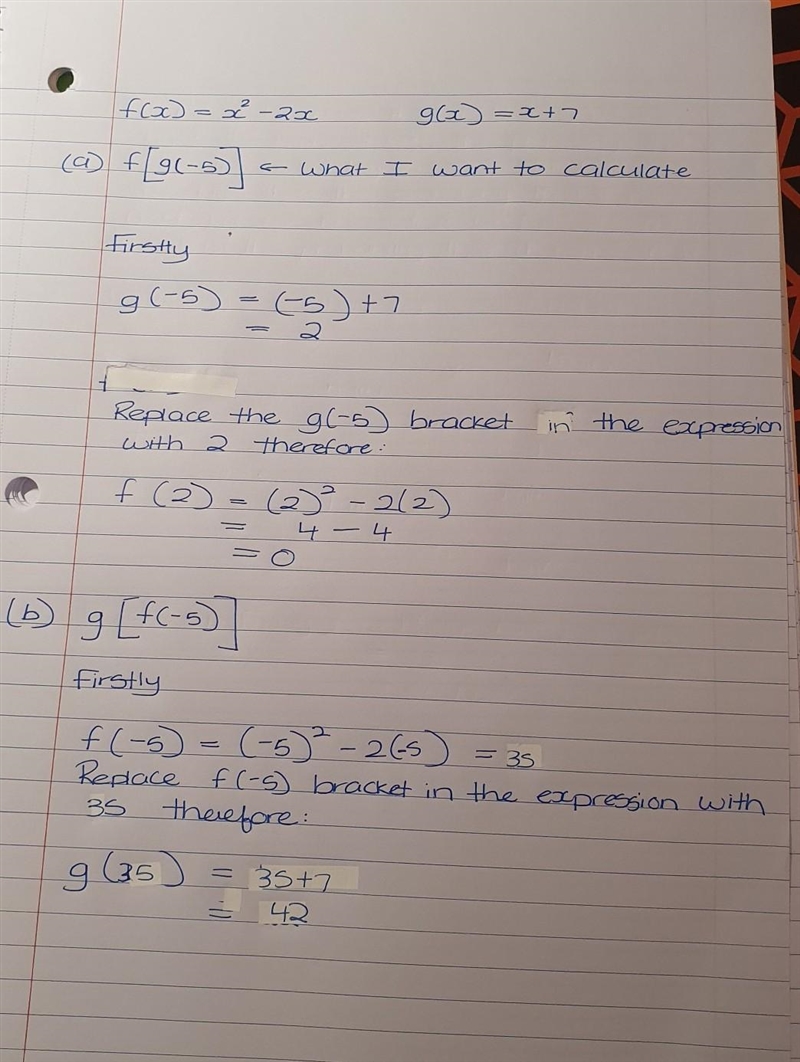 f(x) = x² - 2x g(x) = x+7
(a) f[g(-5)] ← What I want to calculate
Firstly
g(-5) = (-5)+7
= 2
Replace the g(-5) bracket in the expression
with 2 therefore:
f(2) = (2)² - 2(2)
= 4 - 4
= 0
(b) g[f(-5)]
Firstly
f(-5) = (-5)² - 2(-5) = 35
Replace f(-5) bracket in the expression with
35 therefore:
g(35) = 35+7
= 42